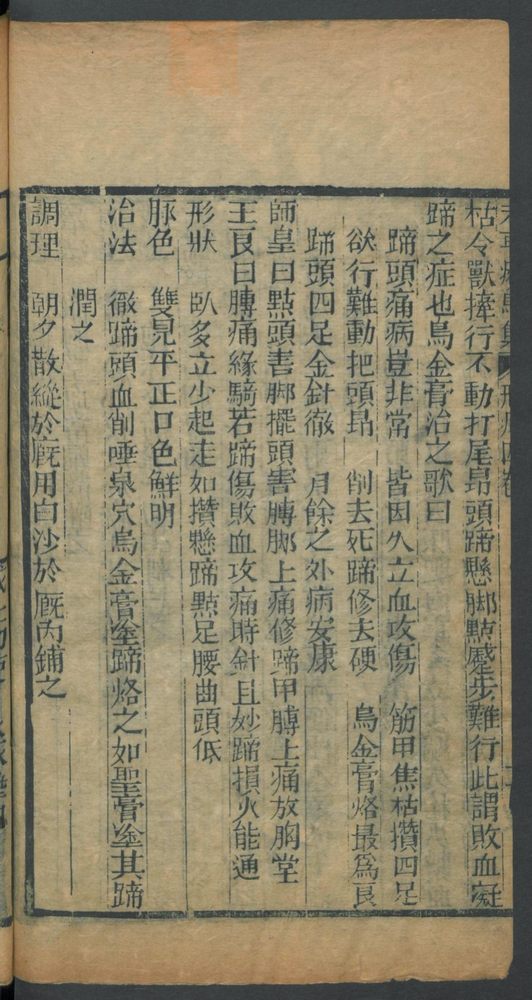 枯令獸擡行不動打尾昻頭蹄懸脚㸃蹙步難行此謂敗血凝
蹄之症也烏金膏治之歌曰
蹄頭痛病豈非常 皆因久立血攻傷 筋甲焦枯攢四足
欲行難動把頭昻 削去死蹄修去硬 烏金膏烙最爲良
蹄頭四足金針徹 月餘之外病安康
師皇曰㸃頭害脚擺頭害膊脚上痛修蹄甲膊上痛放胸堂
王良曰膊痛緣騎若蹄傷敗血攻痛時針且妙蹄損火能通
形狀 臥多立少起走如攢懸蹄㸃足腰曲頭低
脉色 雙見平正口色鮮明
治法 徹蹄頭血削唾泉穴烏金膏塗蹄烙之如聖膏塗其蹄
潤之
調理 朝夕散縱於厩用白沙於厩丙鋪之